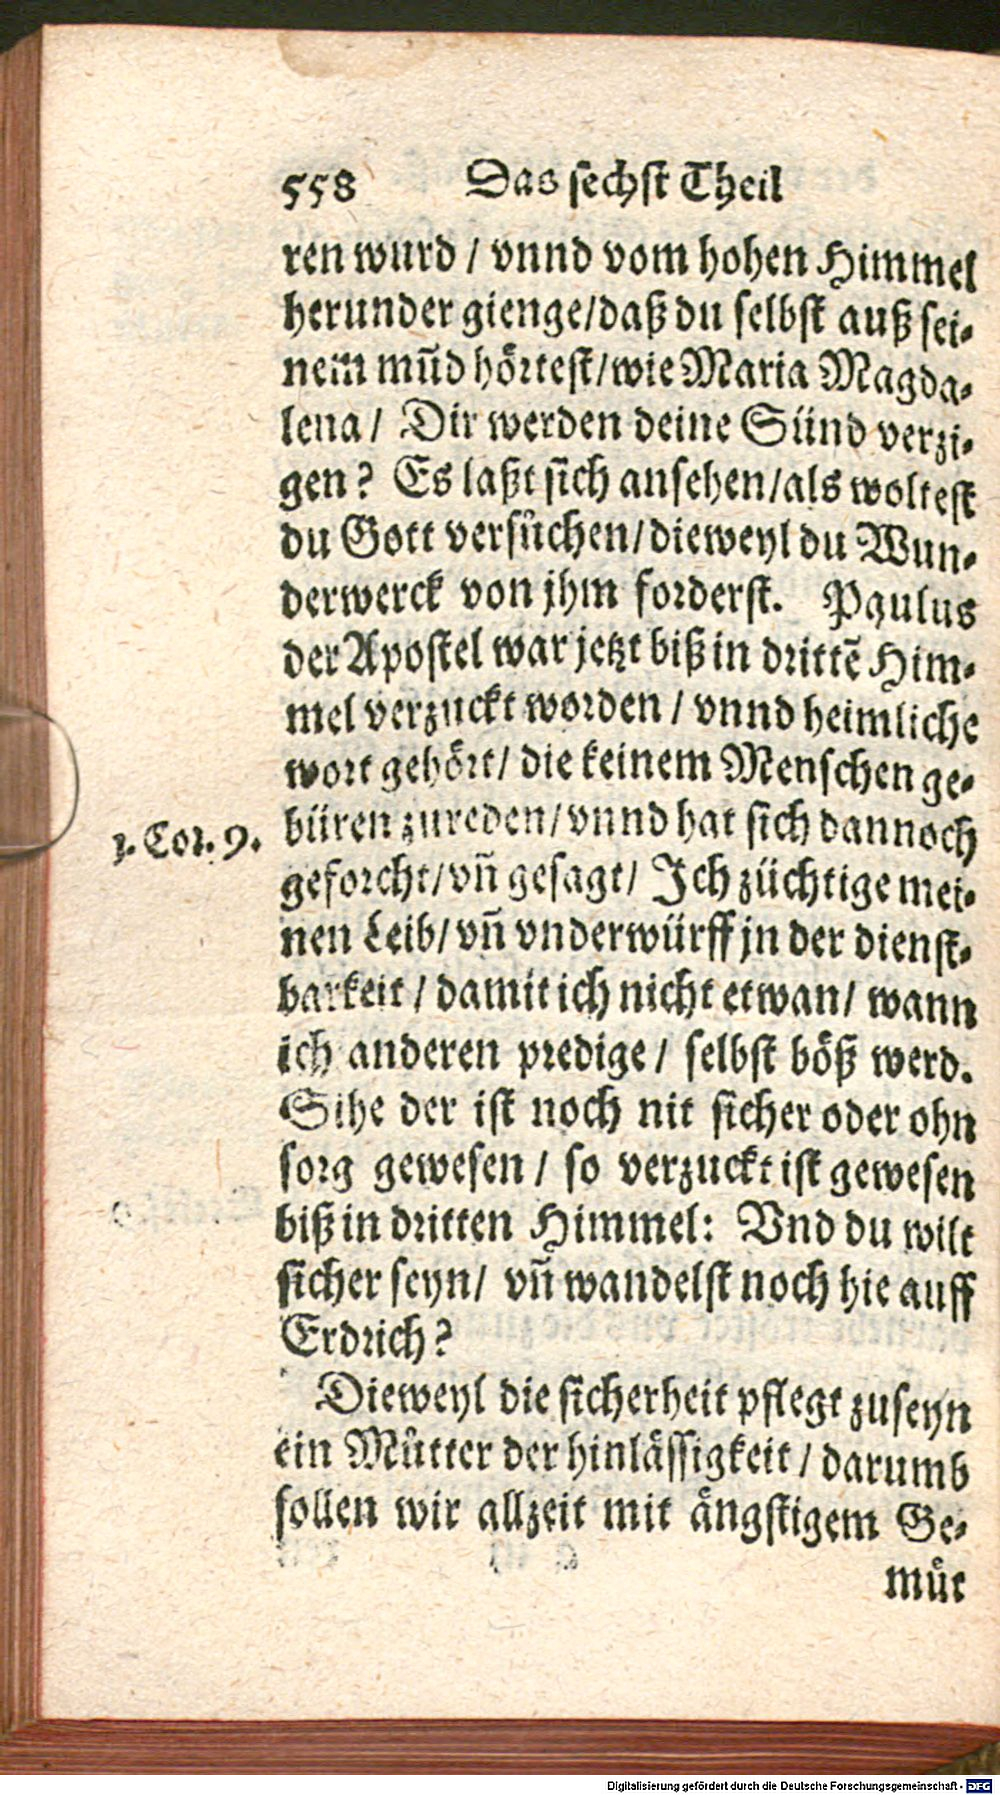 558 Das sechst Theil
ren wurd / vnnd vom hohen Himmel
herunder gienge/daß du selbst auß sei-
nem mūd hörtest/wie Maria Magda-
lena / Dir werden deine Sünd verzi-
gen? Es laßt sich ansehen/als woltest
du Gott versůchen/dieweyl du Wun-
derwerck von jhm forderst. Paulus
der Apostel war jetzt biß in drittē Him-
mel verzuckt worden / vnnd heimliche
wort gehört/ die keinem Menschen ge-
büren zureden/vnnd hat sich dannoch
1. Cor. 9.
geforcht/vn̄ gesagt/ Ich züchtige mei-
nen Leib/vn̄ vnderwürff jn der dienst-
barkeit / damit ich nicht etwan/ wann
ich anderen predige / selbst böß werd.
Sihe der ist noch nit sicher oder ohn
sorg gewesen / so verzuckt ist gewesen
biß in dritten Himmel: Vnd du wilt
sicher seyn/ vn̄ wandelst noch hie auff
Erdrich?
Dieweyl die sicherheit pflegt zuseyn
ein Můtter der hinlässigkeit / darumb
sollen wir allzeit mit ängstigem Ge-
müt
Digitalisierung gefördert durch die Deutsche Forschungsgemeinschaft - DFG